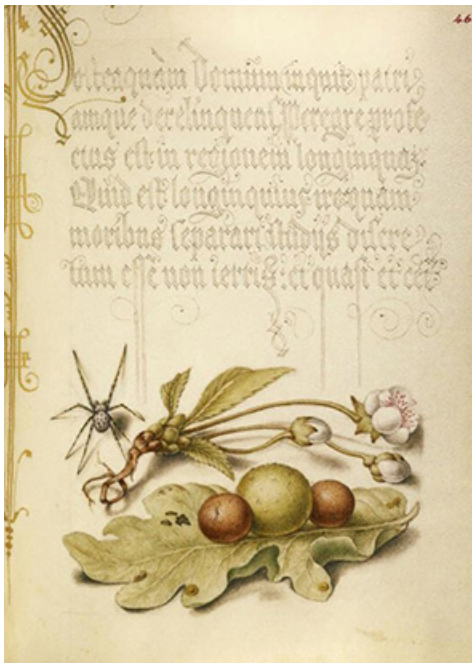 46
Domum inquit patri
amque Peregre profe
ctus est in regionem longinquam
Quid est longinquius quam
moribus separari studijs discre
tum esse non terris: et quasi et cet